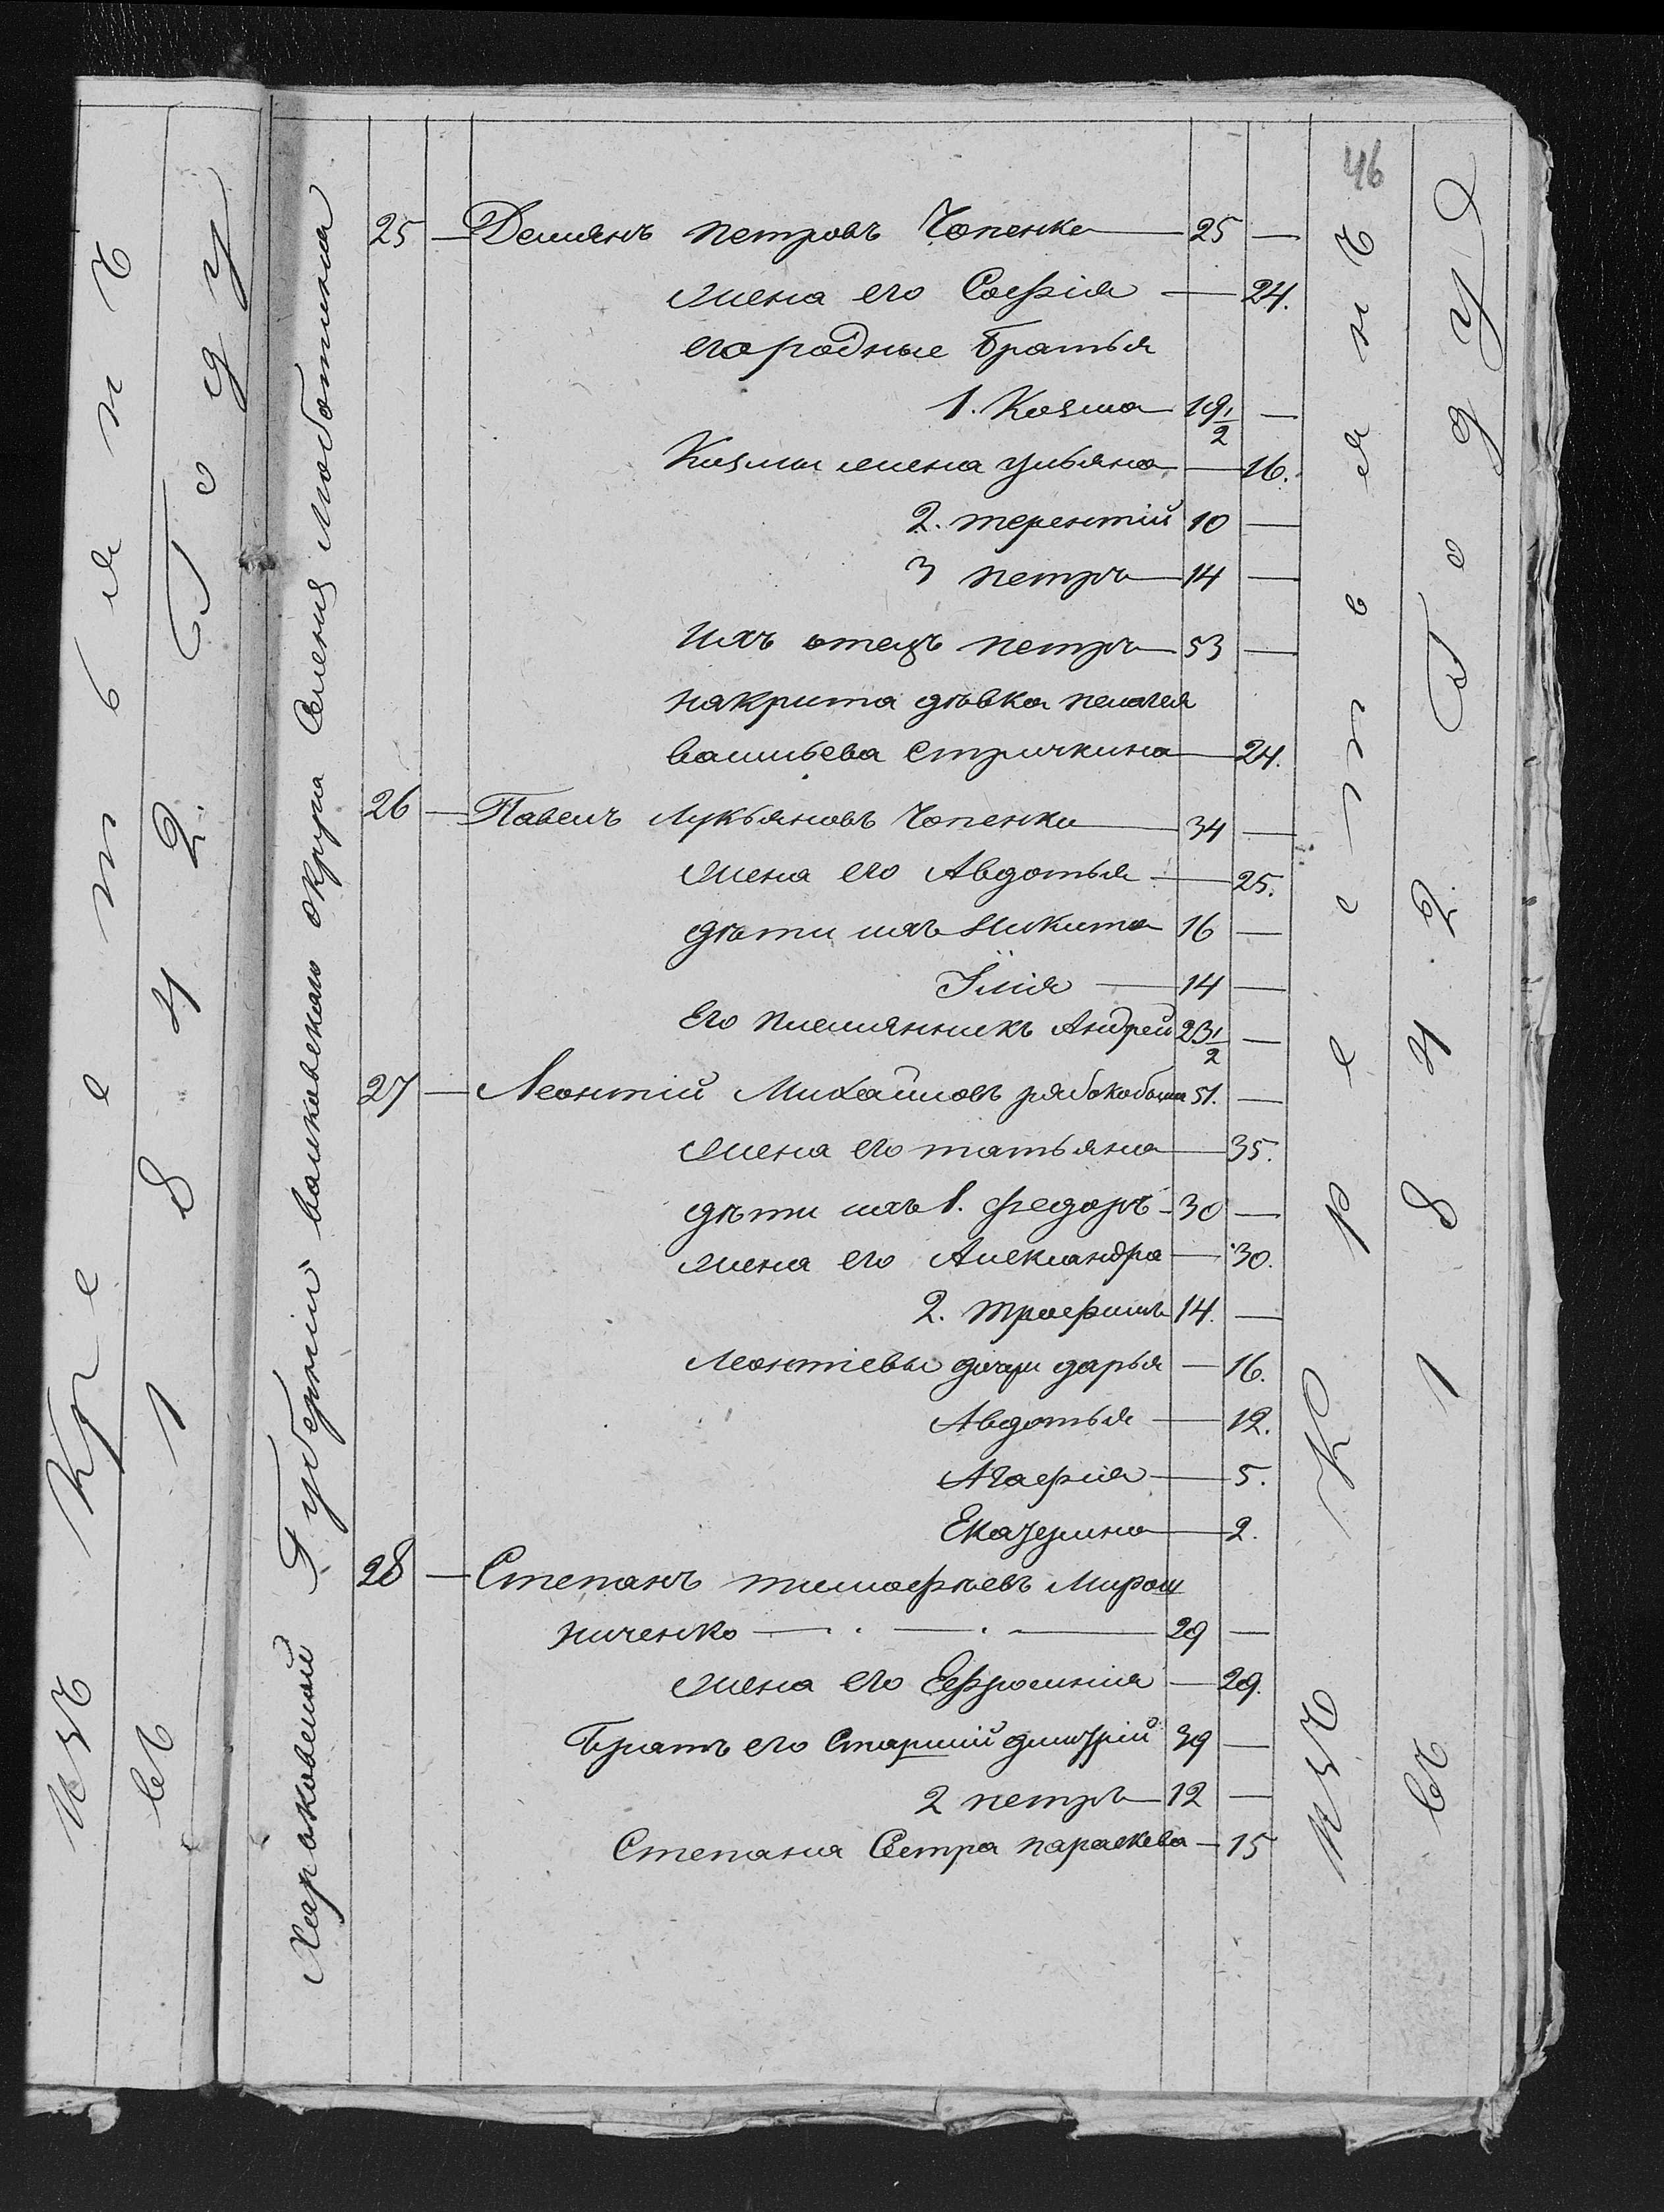 46
Изъ Крестьянъ
въ 1842 Году
Харьковской Губерніи валковскаго округа Селенія Люботина
25 — Демьянъ петровъ Чопенко — 25 —
жена его Софія — 24.
его родные братья
1. Козма — 19 1/2 —
Козмы жена ульяна — 16.
2. терентій 10 —
3 петръ — 14 —
ихъ отецъ петръ — 53 —
накрыта дѣвка пелагея
васильева стричкина — 24.
26 — Павелъ Лукьяновъ Чопенко — 34 —
жена его Авдотья — 25.
дѣти ихъ Никита 16 —
Илія — 14 —
Его племянникъ Андрей 23 1/2 —
27 — Леонтій Михайловъ рябокобыла 51. —
жена его татьяна — 35.
дѣти ихъ 1. федоръ — 30 —
жена его Александра — 30.
2. трофимъ 14. —
Леонтіевы дочери дарья — 16.
Авдотья — 12.
Агафія — 5.
Екатерина — 2.
28 — Степанъ тимофѣевъ Мирош
ниченко — 29 —
жена его Ефросинія — 29.
Братъ его Старший дмитрій 39 —
2 петръ — 12 —
Степана Сестра параскева — 15
Изъ Крестьянъ
въ 1842. Году